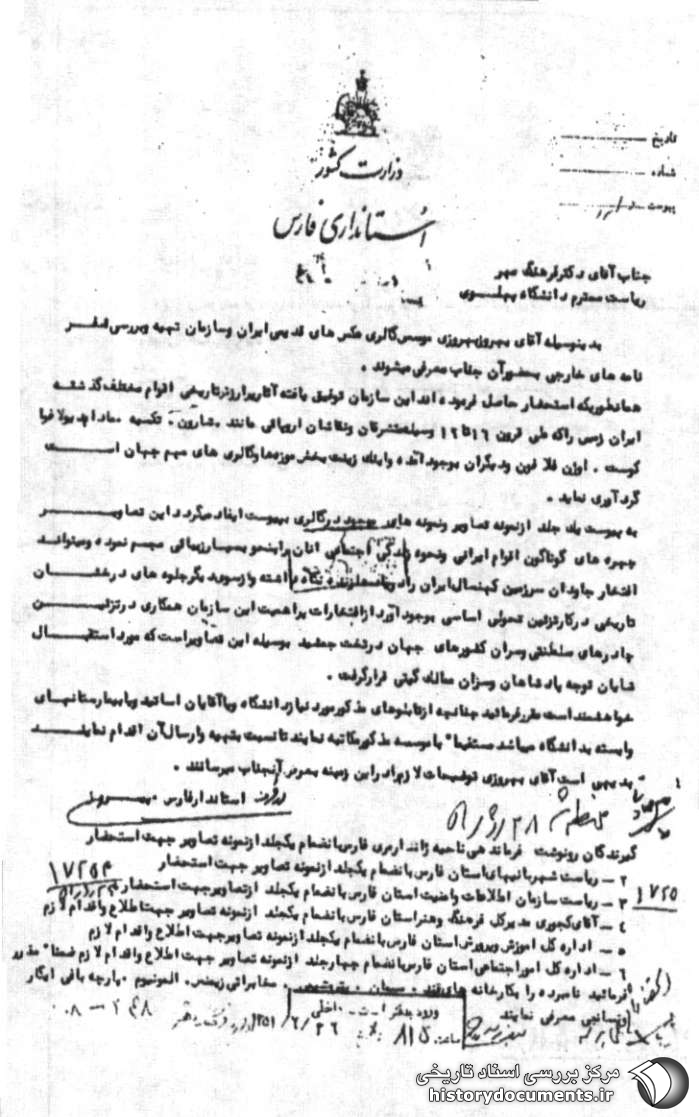 وزارت کشور
استانداری فارس
تاریخ
شماره
پیوست
جناب آقای دکتر فرهنگ مهر
ریاست محترم دانشگاه پهلوی
بدینوسیله آقای بهروز بهروزی موسس گالری عکس های قدیمی ایران وسازمان تهیه وبررسی
نامه های خارجی بحضور آن جناب معرفی میشوند .
همانطوریکه استحضار حاصل فرموده اند این سازمان توفیق یافته آثار پرارزش تاریخی اقوام مختلف گذشته
ایران زمین راکه طی قرون ۱۶ تا ۱۹ وسیله مستشرقان ونقاشان اروپائی مانند . شاردن . تکسیه . مادام دیولافوا
کوست . اوژن فلاندن ودیگران بوجود آمده واینک زینت بخش موزه ها وگالری های مهم جهان است
گردآوری نماید .
به پیوست یک جلد ازنمونه تصاویر ونمونه های موجود درگالری بپیوست ایفاد میگردد این تصاویر
چهره های گوناگون اقوام ایرانی ونحوه زندگی اجتماعی آنان رابنحو بسیار زیبائی مجسم نموده ومیتواند
افتخار جاودان سرزمین کهنسال ایران را زنده نگاه داشته وازسوی دیگر جلوه های درخشان
تاریخی درکار تزئین تحولی اساسی بوجود آورد ازافتخارات پراهمیت این سازمان همکاری درتزئین
چادرهای سلطنتی وسران کشورهای جهان درتخت جمشید بوسیله این تصاویر است که مورد استقبال
شایان توجه پادشاهان وسران ممالک گیتی قرارگرفت .
خواهشمند است مقررفرمائید چنانچه ازتابلوهای مذکور مورد نیاز دانشگاه ویا آقایان اساتید ویا بیمارستانهای
وابسته بدانشگاه میباشد مستقیما" با موسسه مذکور مکاتبه نمایند تا نسبت بتهیه وارسال آن اقدام نمایند
بدیهی است آقای بهروزی توضیحات لازم رادر این زمینه بعرض آنجناب میرسانند .
استاندار فارس
گیرندگان رونوشت فرماندهی ناحیه ژاندارمری فارس بانضمام یکجلد ازنمونه تصاویر جهت استحضار
۲ - ریاست شهربانیهای استان فارس بانضمام یکجلد ازنمونه تصاویر جهت استحضار
۳ - ریاست سازمان اطلاعات وامنیت استان فارس بانضمام یکجلد ازتصاویر جهت استحضار
۱۷۲۵۴
۱۷۲۵
۴ - آقای کجوری مدیرکل فرهنگ وهنر استان فارس بانضمام یکجلد ازنمونه تصاویر جهت اطلاع واقدام لازم
۵ - اداره کل آموزش وپرورش استان فارس بانضمام یکجلد ازنمونه تصاویر جهت اطلاع واقدام لازم
۶ - اداره کل اموراجتماعی استان فارس بانضمام چهارجلد ازنمونه تصاویر جهت اطلاع واقدام لازم ضمنا" مقرر
فرمائید نامبرده را بکارخانه های قند . سیمان . پتروشیمی . مخابراتی زیمنس . آلومنیوم . پارچه بافی
معرفی نمایند
ورود بدفتر ا - ت - داخلی
ساعت ۸۱۵
۱۳۵۱/۶/۲۶
مرکز بررسی اسناد تاریخی
historydocuments.ir